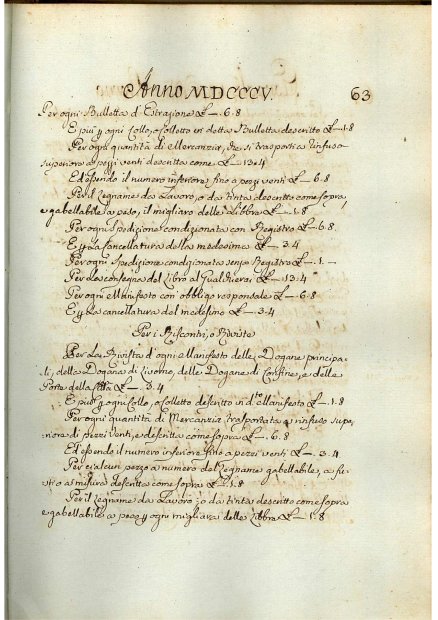 Anno MDCCCV.
63
Per ogni Bulletta d'Estrazione £ —. 6. 8
E più p ogni Collo, o Colletto in detta Bulletta descritto £ —. 1. 8
Per ogni quantità di Mercanzia, che si trasporti a rinfuso
superiore a pezzi venti descritta come £ — 13. 4
Ed essendo il numero inferiore fino a pezzi venti £ —. 6. 8
Per il Legname da Lavoro, o da tinta descritto come sopra,
e gabellabile a peso, il migliaro delle Libbre £ —. 1. 8
Per ogni Spedizione condizionata con Registro £ —. 6. 8
E p la Cancellatura della medesima £ —. 3. 4
Per ogni Spedizione condizionata senza Registro £ —. 1. —
Per la consegna del Libro al £ —. 13. 4
Per ogni Manifesto con obbligo responsale £ —. 6. 8
E p la cancellatura del medesimo £ —. 3. 4
Per i Riscontri, o Riviste
Per la Rivista d'ogni Manifesto delle Dogane principa-
li, della Dogana di Livorno, delle Dogane di Confine, e delle
Porte della Città £ —. 3. 4
E più p ogni Collo, o Colletto descritto in d.to Manifesto £ —. 1. 8
Per ogni quantità di Mercanzia trasportata a rinfuso supe-
riore di pezzi venti, e descritta come sopra £ —. 6. 8
Ed essendo il numero inferiore fino a pezzi venti £ —. 3. 4
Per ciascun pezzo a numero del Legname gabellabile, a fu-
sto o a misura descritta come sopra £ —. 1. 8
Per il Legname da Lavoro, o da tinta descritto come sopra
e gabellabile a peso p ogni migliara delle Libbre £ —. 1. 8